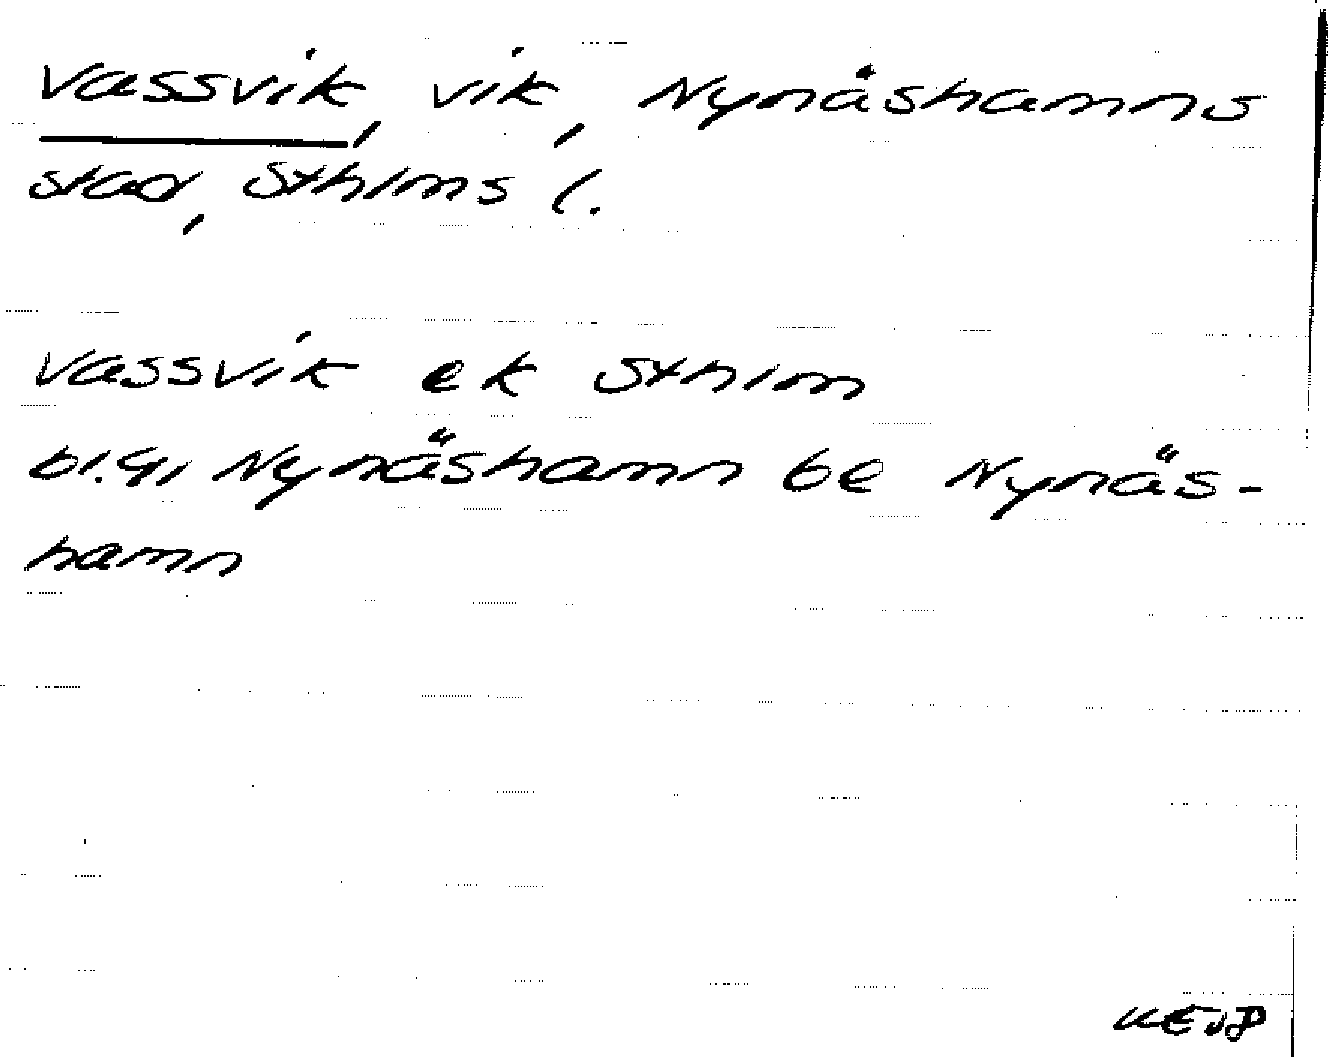 Vassvik, vik, Nynåshamns
stad, Sthlms l.
Vassvik ek Sthlm
bl. 91 Nynäshamn be Nynäs-
hamn